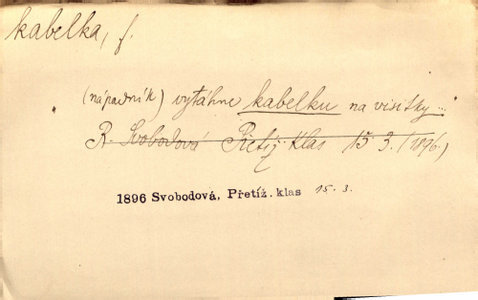 kabelka, f.
(nápadník) vytáhne kabelku na visitky...
R. Svobodová Přetíž. klas 15.3. (1896.)
1896 Svobodová, Přetíž. klas 15.3.